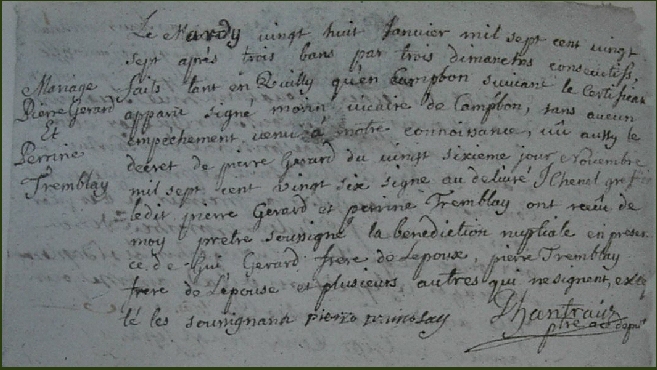 Mariage
Pierre Gerard
Et
Perrine
Tremblay
Le Mardy vingt huit Janvier mil sept cent vingt
sept aprés trois bans par trois dimanches consecutifs,
faits tant en Quilly qu'en campbon suivant le Certificat
apparu signé morin vicaire de Campbon, sans aucun
empechement venu à notre connoissance, vu aussy le
decret de pierre Gerard du vingt sixieme jour novembre
mil sept cent vingt six signe au delivré J Chenel
ledit pierre Gerard et perrine Tremblay ont recû de
moy prêtre soussigné la benediction nuptiale en presen
ce de Gui Gerard frere de Lepoux, pierre Tremblay
frere de Lepouse et plusieurs autres qui ne signent, excep
té les soussignants pierre tremblay
ptre